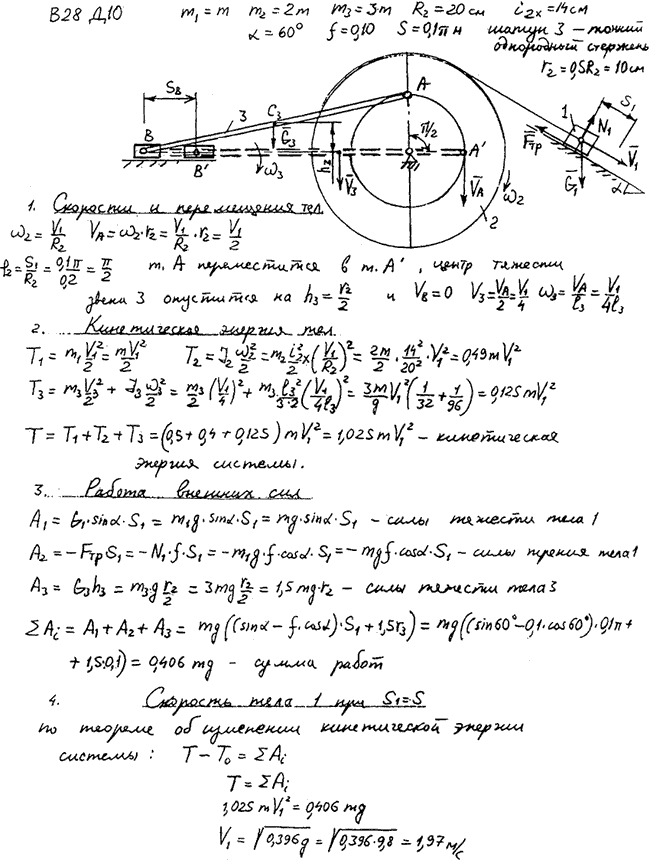 В28 Д10 m₁ = m m₂ = 2m m₃ = 3m R₂ = 20 см i₂ₓ = 14 см
α = 60° f = 0,10 S = 0,1π м шатун 3 – тонкий
однородный стержень
r₂ = 0,5R₂ = 10 см
S_B 3 C₃ A Ḡ₃ h₃ B B' ω₃ V̄₃ π/2 A' V̄_A ω₂ 2 F̄тр 1 N̄₁ S₁ V̄₁ Ḡ₁ α
1. Скорости и перемещения тел
ω₂ = V₁/R₂ V_A = ω₂·r₂ = V₁/R₂·r₂ = V₁/2
φ₂ = S₁/R₂ = 0,1π/0,2 = π/2 т. A переместится в т. A', центр тяжести
звена 3 опустится на h₃ = r₂/2 и V_B = 0 V₃ = V_A/2 = V₁/4 ω₃ = V_A/l₃ = V₁/4l₃
2. Кинетическая энергия тел
T₁ = m₁V₁²/2 = mV₁²/2 T₂ = J₂ω₂²/2 = m₂i₂ₓ²/2 (V₁/R₂)² = 2m/2·14²/20²·V₁² = 0,49mV₁²
T₃ = m₃V₃²/2 + J₃ω₃²/2 = m₃/2 (V₁/4)² + m₃·l₃²/3·2 (V₁/4l₃)² = 3m/g V₁²(1/32 + 1/96) = 0,125mV₁²
T = T₁+T₂+T₃ = (0,5+0,4+0,125)mV₁² = 1,025mV₁² – кинетическая
энергия системы.
3. Работа внешних сил
A₁ = G₁·sinα·S₁ = m₁g·sinα·S₁ = mg·sinα·S₁ – силы тяжести тела 1
A₂ = –Fтр·S₁ = –N₁·f·S₁ = –m₁g·f·cosα·S₁ = –mgf·cosα·S₁ – силы трения тела 1
A₃ = G₃h₃ = m₃·g r₂/2 = 3mg r₂/2 = 1,5mg·r₂ – силы тяжести тела 3
ΣAᵢ = A₁ + A₂ + A₃ = mg((sinα – f·cosα)·S₁ + 1,5r₃) = mg((sin60° – 0,1·cos60°)·0,1π +
+ 1,5·0,1) = 0,406 mg – сумма работ
4. Скорость тела 1 при S₁=S
по теореме об изменении кинетической энергии
системы: T – T₀ = ΣAᵢ
T = ΣAᵢ
1,025mV₁² = 0,406mg
V₁ = √0,396g = √0,396·9,8 = 1,97 м/с